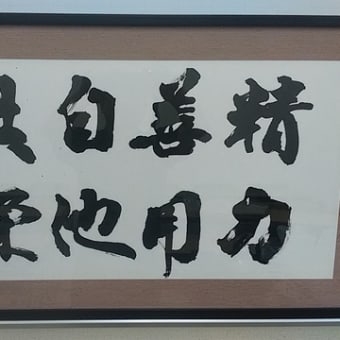 精力
善用
自他
共栄